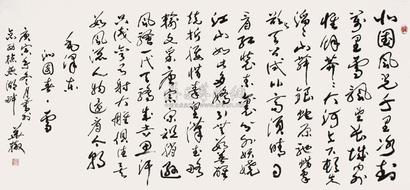 北国风光千里冰封
万里雪飘望长城内外
惟馀莽莽大河上下顿失
滔滔山舞银蛇原驰蜡象
欲与天公试比高须晴日
看红装素裹分外妖娆
江山如此多娇引无数英雄
竞折腰惜秦皇汉武略
输文采唐宗宋祖稍逊
风骚一代天骄成吉思汗
只识弯弓射大雕俱往矣
数风流人物还看今朝
毛泽东
沁园春·雪
庚寅年冬月书於